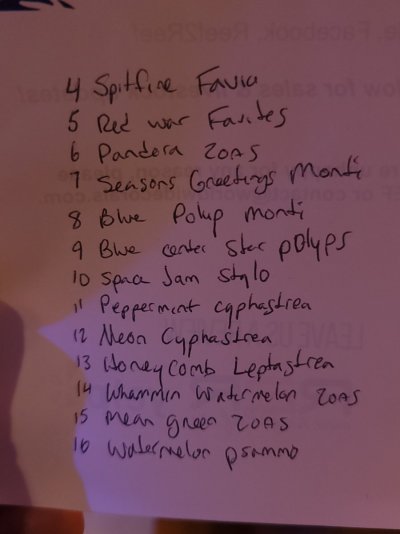 4 Spitfire Favia
5 Red war Favites
6 Pandora ZOAS
7 Seasons Greetings Monti
8 Blue Polyp monti
9 Blue center Star pOlyps
10 Space Jam Stylo
11 Peppermint cyphastrea
12 Neon Cyphastrea
13 HoneyComb Leptastrea
14 Whammin Watermelon ZOAS
15 Mean green ZOAS
16 Watermelon psammo